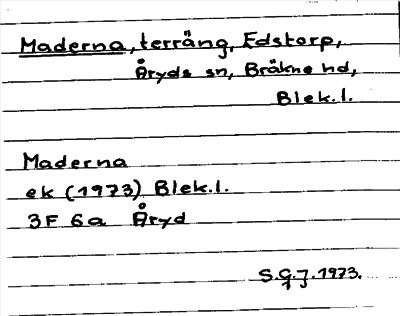 Maderna, terräng, Edstorp,
Åryds sn, Bräkne hd,
Blek.l.
Maderna
ek (1973) Blek.l.
3F 6a Åryd
S.G.J. 1973.